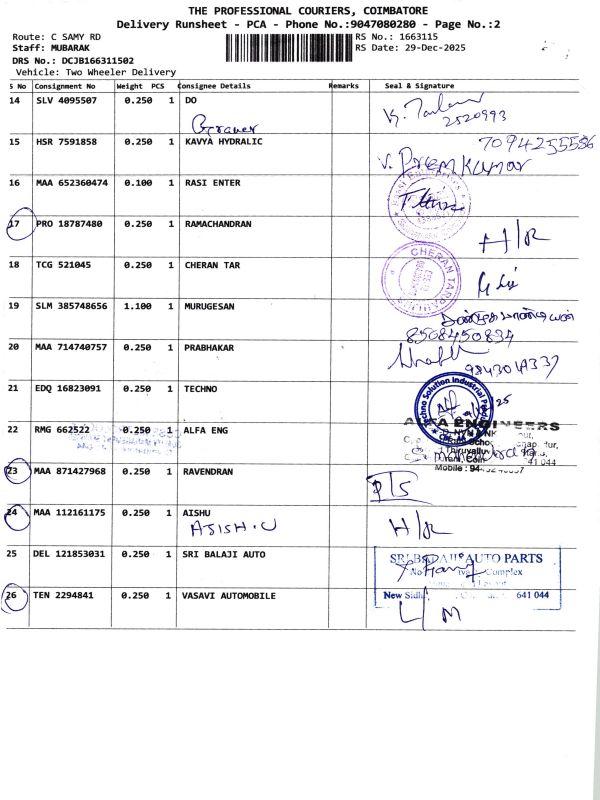 THE PROFESSIONAL COURIERS, COIMBATORE
Delivery Runsheet - PCA - Phone No.:9047080280 - Page No.:2
Route: C SAMY RD
RS No.: 1663115
Staff: MUBARAK
RS Date: 29-Dec-2025
DRS No.: DCJB166311502
Vehicle: Two Wheeler Delivery
S No Consignment No Weight PCS Consignee Details Remarks Seal & Signature
14 SLV 4095507 0.250 1 DO
2520993
15 HSR 7591858 0.250 1 KAVYA HYDRALIC
7094255556
V. PREM KUMAR
16 MAA 652360474 0.100 1 RASI ENTER
17 PRO 18787480 0.250 1 RAMACHANDRAN
H/R
18 TCG 521045 0.250 1 CHERAN TAR
CHERAN TARPA
19 SLM 385748656 1.100 1 MURUGESAN
8508450834
20 MAA 714740757 0.250 1 PRABHAKAR
21 EDQ 16823091 0.250 1 TECHNO
Techno Solution Industrial
22 RMG 662522 0.250 1 ALFA ENG
ALFA ENGINEERS
641 044
Mobile : 94
23 MAA 871427968 0.250 1 RAVENDRAN
24 MAA 112161175 0.250 1 AISHU
AJISH.U
H/R
25 DEL 121853031 0.250 1 SRI BALAJI AUTO
SRI BALAJI AUTO PARTS
Complex
New Sidh 641 044
26 TEN 2294841 0.250 1 VASAVI AUTOMOBILE
L/M